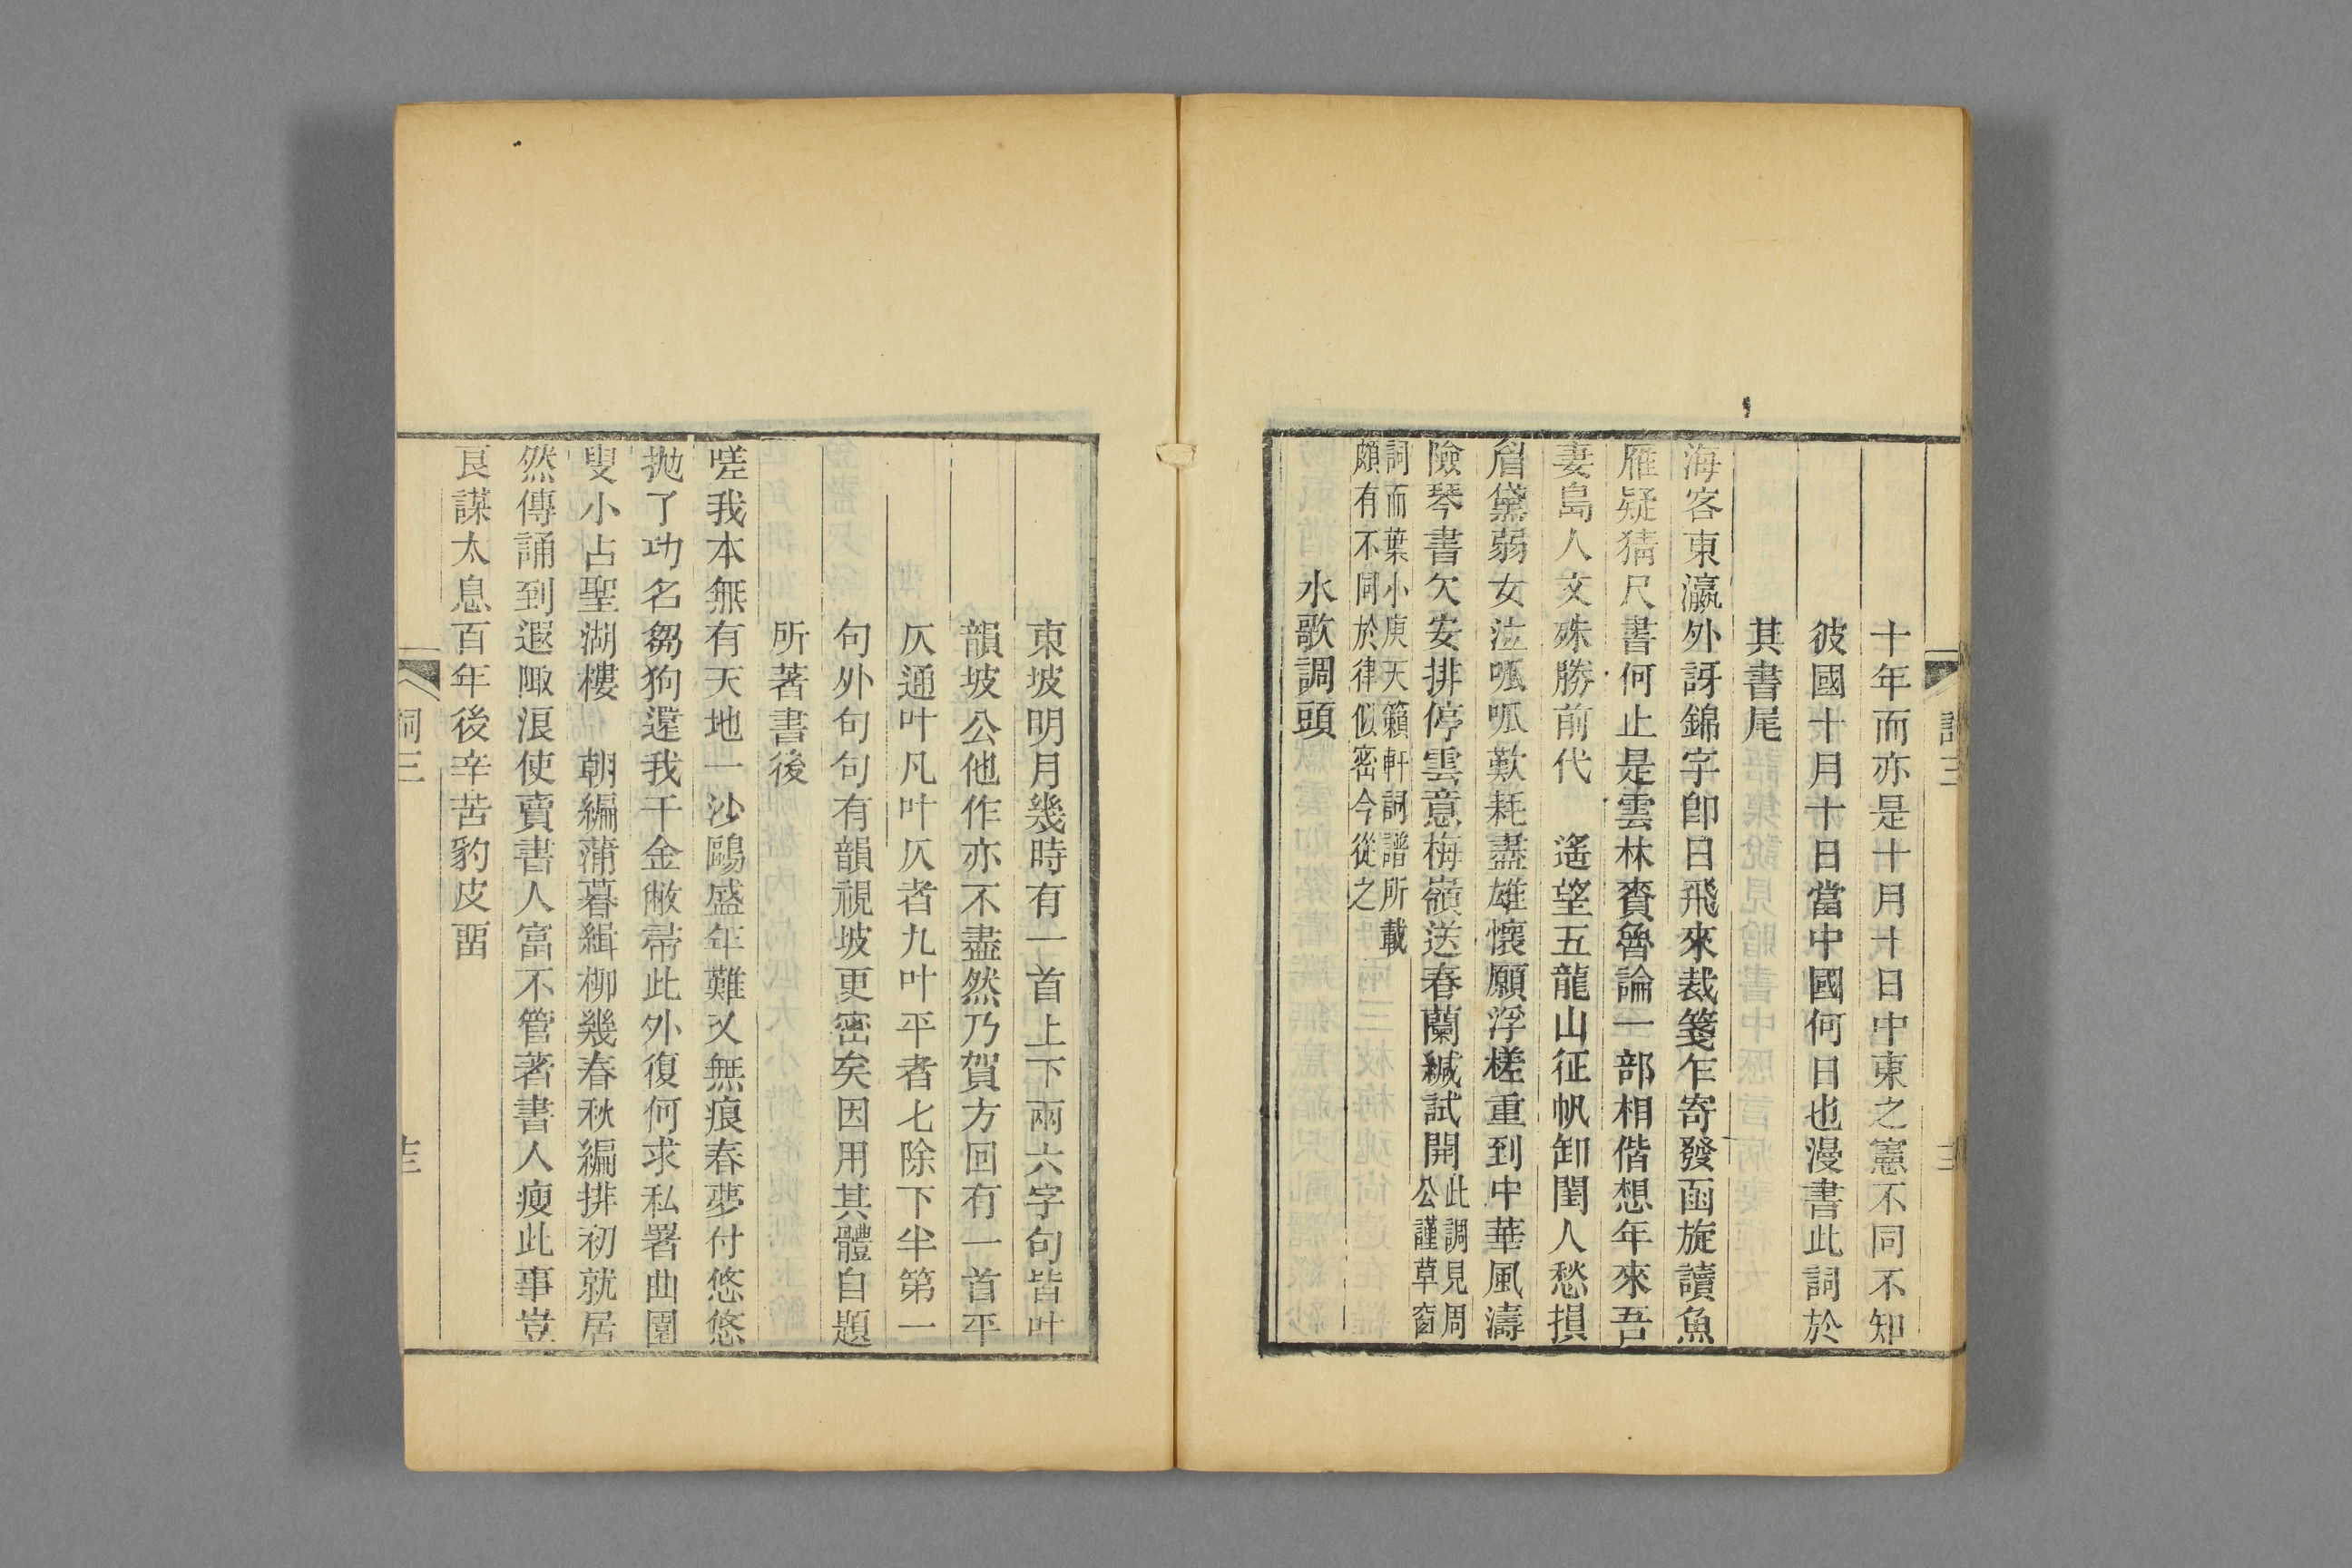 十年而亦是十月十日中東之憲不同不知
彼國十月十日當中國何日也漫書此詞於
其書尾
海客東瀛外訝錦字卽日飛來裁箋乍寄發函旋讀魚
雁疑猜尺書何止是雲林賚魯論一部相偕想年來吾
妻島人文殊勝前代　遙望五龍山征帆卸閨人愁損
眉黛弱女泣呱呱歎耗盡雄懷願浮槎重到中華風濤
險琴書欠安排停雲意梅嶺送春蘭緘試開此調見周
公謹草窗
詞而葉小庚天籟軒詞譜所載
頗有不同於律似密今從之
水歌調頭
東坡明月幾時有一首上下兩六字句皆叶
韻坡公他作亦不盡然乃賀方回有一首平
仄通叶凡叶仄者九叶平者七除下半第一
句外句句有韻視坡更密矣因用其體自題
所著書後
嗟我本無有天地一沙鷗盛年難又無痕春夢付悠悠
拋了功名芻狗還我千金敝帚此外復何求私署曲園
叟小占聖湖樓　朝編蒲暮緝柳幾春秋編排初就居
然傳誦到遐陬浪使賣書人富不管著書人瘦此事豈
良謀太息百年後辛苦豹皮畱
詞三